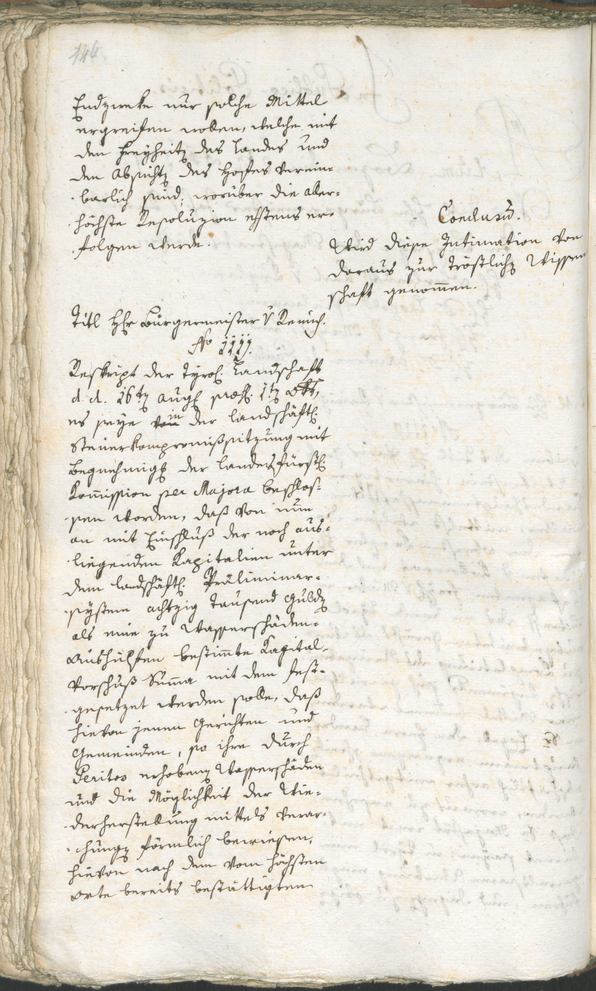 146.
Endzweke nur solche Mittel
ergreifen wollen, welche mit
den Freyheitn des Landes und
den Absichtn des Hofes verein-
barlich sind; worüber die aller-
höchste Resoluzion ehestens er-
folgen werde.
Conclusū.
Wird diese Intimation von
daraus zur tröstlichn Wissen
schaft genommen.
Titl Hhr Bürgermeister
No
Reskript der tyrol. Landschaft
d. d. 26tn Augs praes. 1tn 8br,
es seye in der landschäftl.
Steuerkompromißsitzung mit
Begnehmigg der landesfürstl.
Kommission per Majora beschlos-
sen worden, daß von nun
an mit Einschluß der noch aus-
liegenden Kapitalien unter
dem landschäftl. Präliminar-
systeme achtzig tausend Guldn
als eine zu Wasserschäden-
Aushülfen bestimte Kapital-
Vorschuß Summa mit dem fest-
gesetzet werden solle, daß
hievon jenen Gerichten und
Gemeinden, so ihre durch
Peritos erhobenen Wasserschäden
und die Möglichkeit der Wie-
derherstellung mittels Verar-
chungn förmlich bewiesen,
hievon nach dem vom höchsten
Orte bereits bestättigten